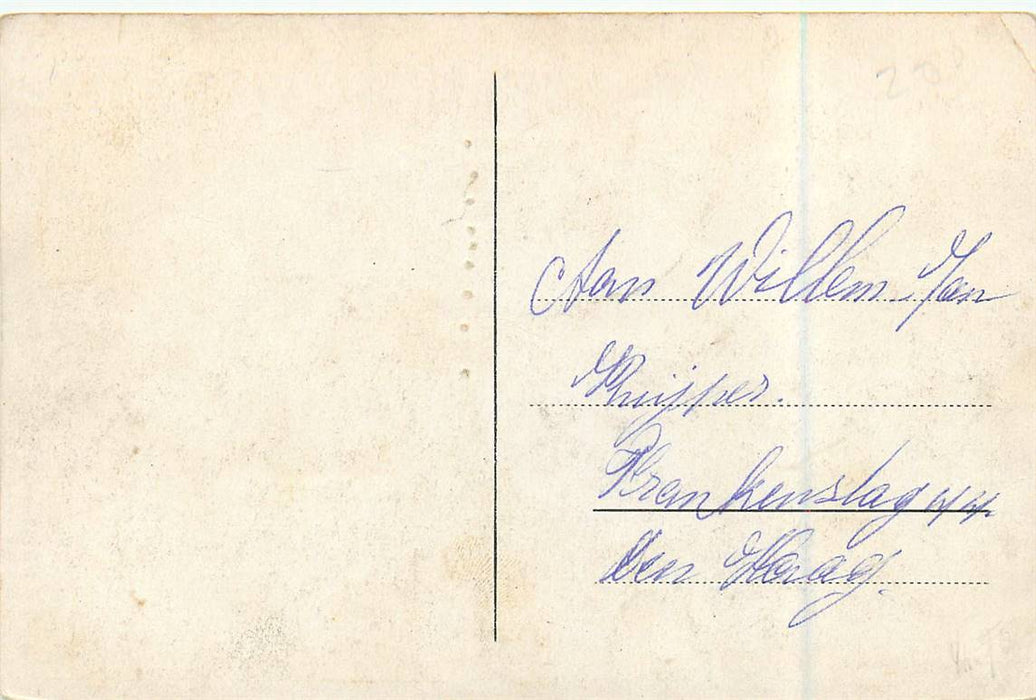 200
Aan Willem Jan
Kuijper.
Frankenslag 44
Den Haag.